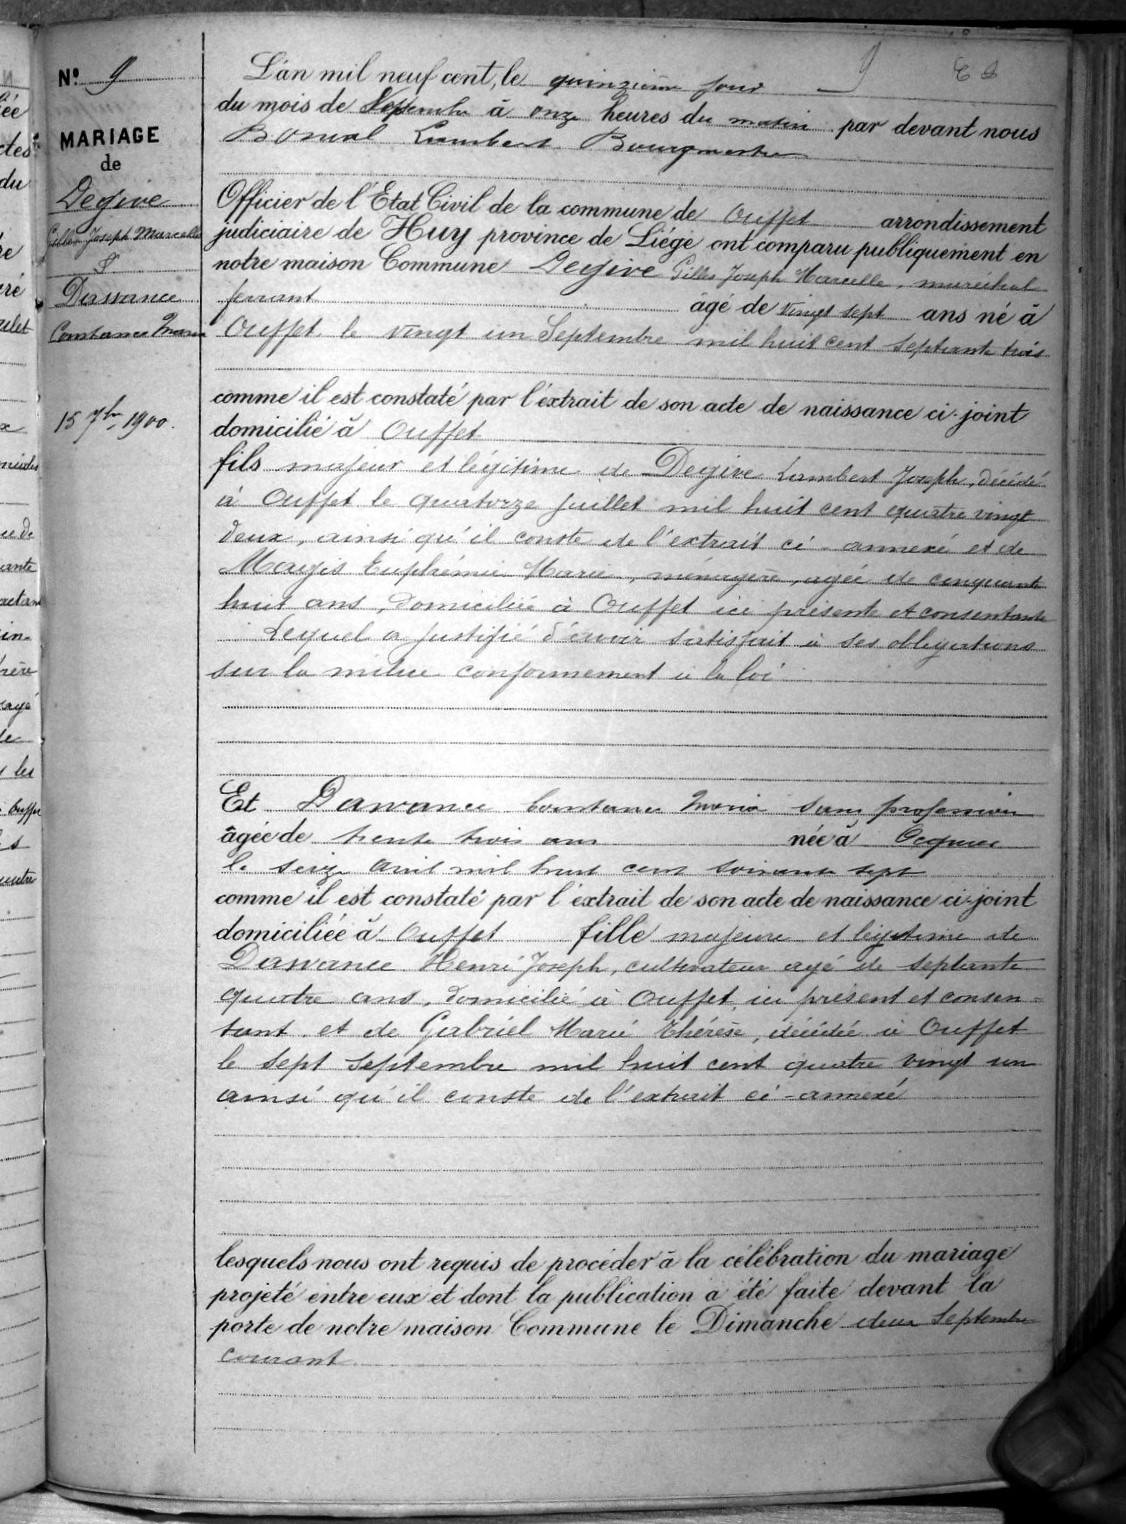 N° 9
MARIAGE
de
Degive
Gilles Joseph Marcelle
&
Dawance
Constance Maria
15 7bre 1900.
9
L'an mil neuf cent, le quinzième jour
du mois de Septembre à onze heures du matin par devant nous
Bonual Lambert Bourgmestre
Officier de l'Etat Civil de la commune de Ouffet arrondissement
judiciaire de Huy province de Liége ont comparu publiquement en
notre maison Commune Degive Gilles Joseph Marcelle, maréchal
ferrant âgé de vingt sept ans né à
Ouffet le vingt un Septembre mil huit cent septante trois
comme il est constaté par l'extrait de son acte de naissance ci-joint
domicilié à Ouffet
fils majeur et légitime de Degive Lambert Joseph, décédé
à Ouffet le quatorze Juillet mil huit cent quatre vingt
deux, ainsi qu'il conste de l'extrait ci-annexé et de
Magis Euphémie Marie, ménagère, agée de cinquante
huit ans, domiciliée à Ouffet ici présente et consentante
Lequel a justifié d'avoir satisfait à ses obligations
sur la milice conformement à la loi
Et Dawance Constance Maria sans profession
âgée de trente trois ans née à Ocquier
le seize avril mil huit cent soixante sept
comme il est constaté par l'extrait de son acte de naissance ci-joint
domiciliée à Ouffet fille majeure et légitime de
Dawance Henri Joseph, cultivateur agé de septante
quatre ans, domicilié à Ouffet ici présent et consen-
tant et de Gabriel Marie Thérèse, décédée à Ouffet
le sept septembre mil huit cent quatre vingt un
ainsi qu'il conste de l'extrait ci-annexé
lesquels nous ont requis de procéder à la célébration du mariage
projeté entre eux et dont la publication a été faite devant la
porte de notre maison Commune le Dimanche deux Septembre
courant